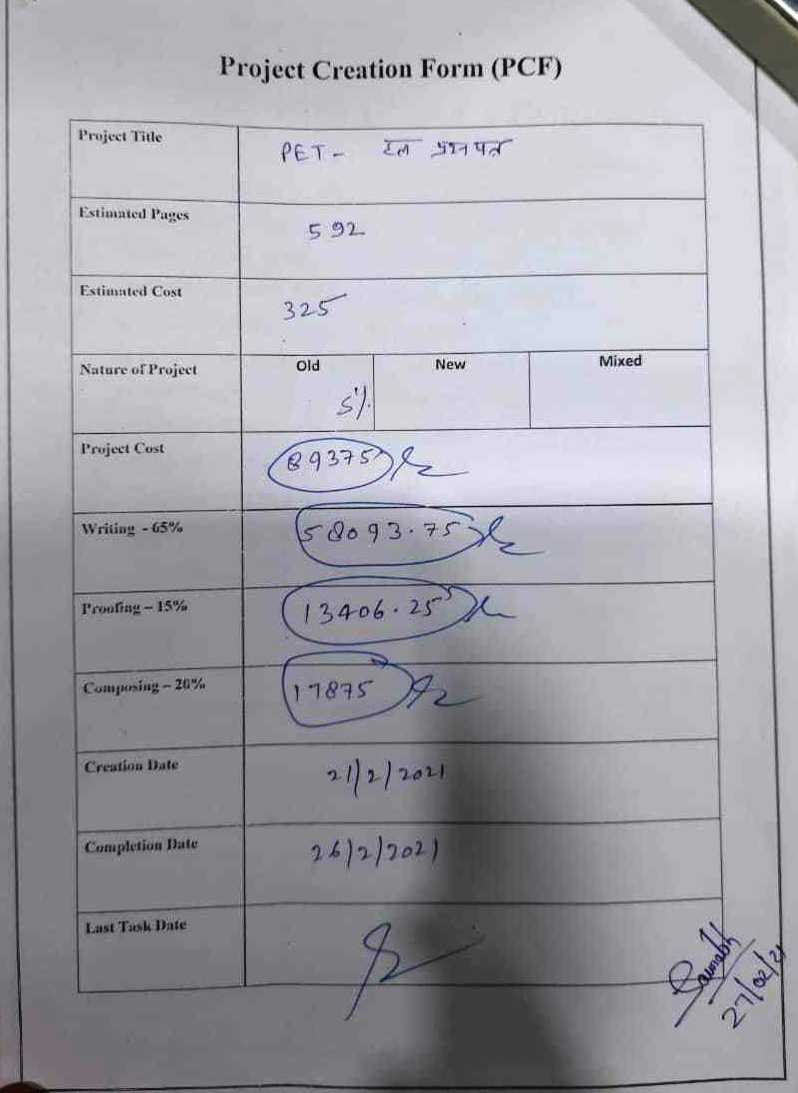 Project Creation Form (PCF)
Project Title PET - हल प्रश्न पत्र
Estimated Pages 592
Estimated Cost 325
Nature of Project Old New Mixed
5%
Project Cost 89375
Writing - 65% 58093.75
Proofing – 15% 13406.25
Composing – 20% 17875
Creation Date 21/2/2021
Completion Date 26/2/2021
Last Task Date
Saurabh
27/02/21